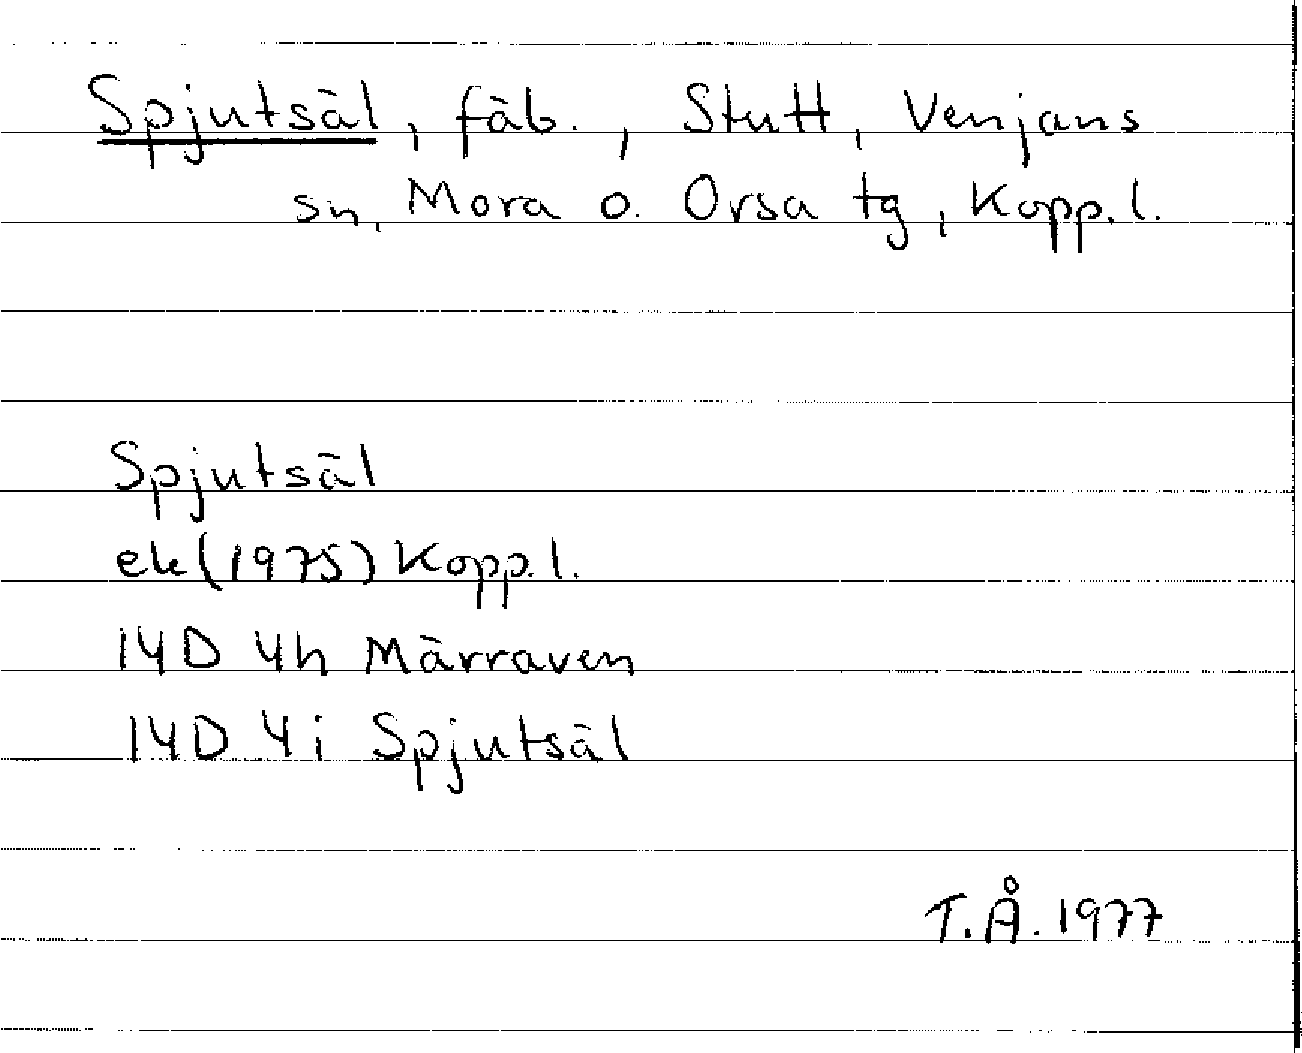 Spjutsäl, fäb., Stutt, Venjans
sn, Mora o. Orsa tg, Kopp.l.
Spjutsäl
ek(1975) Kopp.l.
14D 4h Märraven
14D 4i Spjutsäl
T.Å. 1977